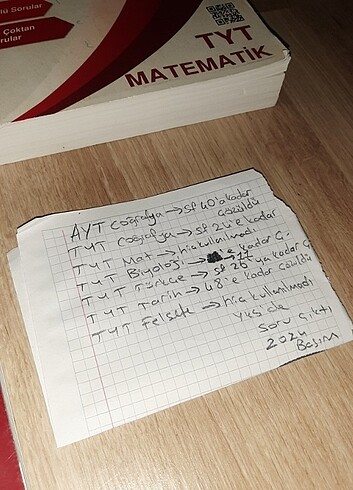 lü Sorular
Çoktan
rular
TYT
MATEMATİK
AYT coğrafya → sf 40'a kadar
çözüldü
TYT coğrafya → sf 24'e kadar
TYT Mat → hiç kullanılmadı
TYT Biyoloji → 'e kadar Ç.
TYT Türkçe → sf 26'ya kadar Ç
TYT Tarih → 48'e kadar çözüldü
TYT Felsefe → hiç kullanılmadı
YKS de
Soru çıktı
2024
Basım